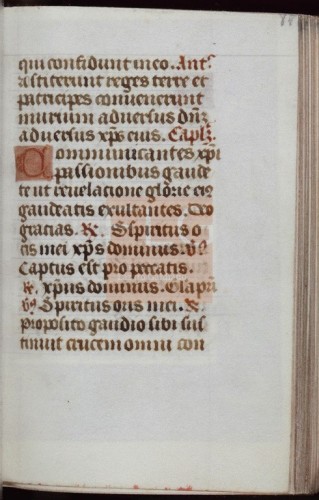 qui confidunt in eo. Antˢ
Astiterunt reges terre et
principes convenerunt
in unum adversus dnʒ
adversus xp̄s eius. Caplʒ.
Communicantes xp̄i
passionibus gaude
te ut in revelacione glorie eiꝯ
gaudeatis exultantes. Deo
gracias. R̷. Spiritus o
ris mei xp̄s dominus. vˢ
Captus est pro peccatis.
R̷. xp̄us dominus. Glapri
vˢ Spiritus oris mei. R̷.
proposito gaudio sibi sus
tinuit crucem omni con